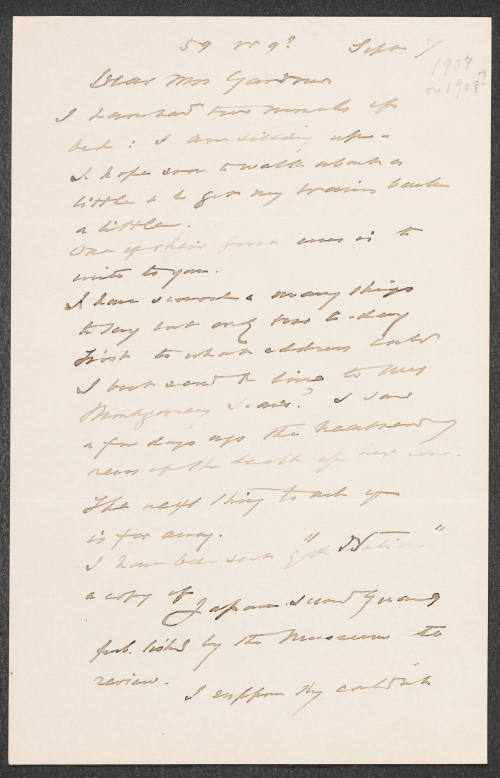 59 W 9? Sept 7
1907
or 1908?
Dear Mrs Gardner
I have had two months of
bed: I am sitting up -
I hope soon to walk about a
little & to get my brains back
a little.
One of their first uses is to
write to you.
I have so many things
to say but only two to-day
First to what address could
I best send a line to Mrs
Montgomery Sears? I saw
a few days ago the heartrending
news of the death of her son.
The next thing to ask of
is far away.
I have been sent by the "Nation"
a copy of Japanese Sword Guards
published by the Museum to
review. I suppose they couldn't